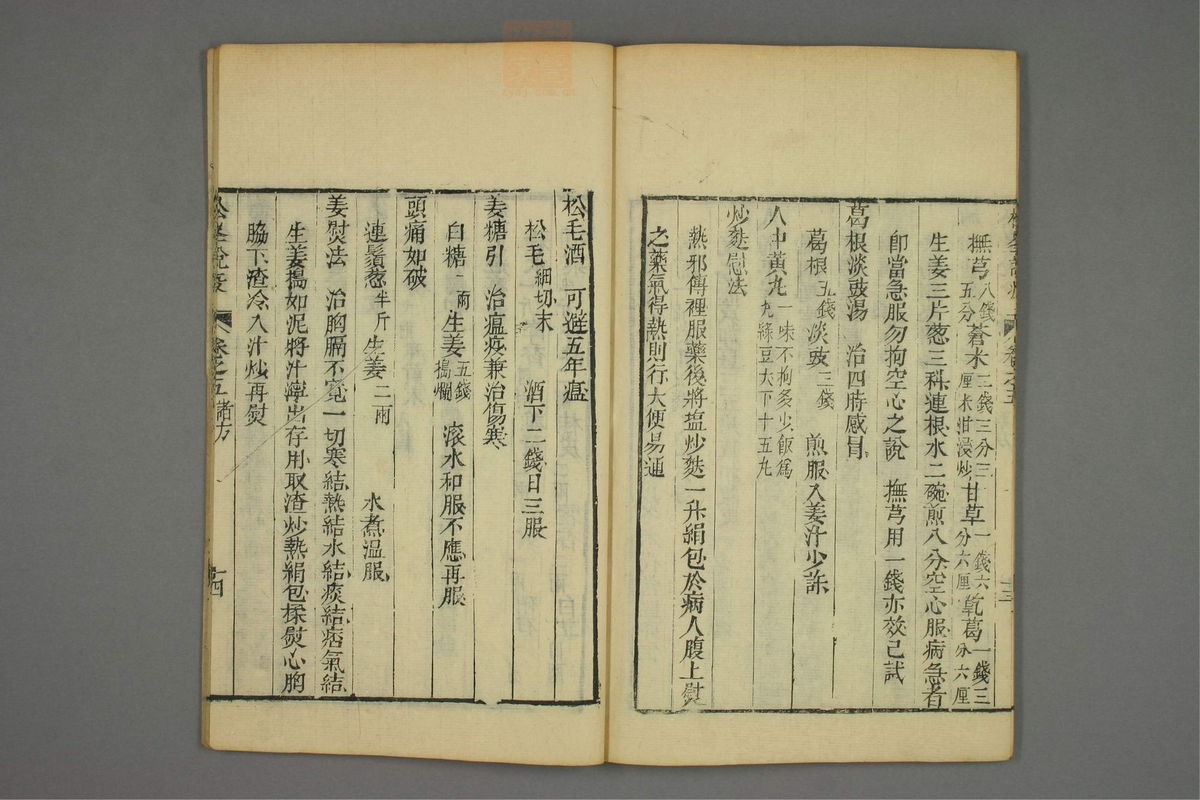 撫芎八錢五分蒼朮三錢三分三厘米泔浸炒甘草一錢六分六厘乾葛一錢三分六厘
生姜三片葱三科連根水二碗煎八分空心服病急者
卽當急服勿拘空心之說 撫芎用一錢亦效已試
葛根淡豉湯 治四時感冐
葛根五錢淡豉三錢 煎服入姜汁少許
人中黃丸一味不拘多少飯爲丸綠豆大下十五丸
炒麩慰法
熱邪傳裡服藥後將塩炒麩一升絹包於病人腹上熨
之藥氣得熱則行大便易通
松毛酒 可避五年瘟
松毛細切末 酒下二錢日三服
姜糖引 治瘟疫兼治傷寒
白糖一兩生姜五錢搗爛 滾水和服不應再服
頭痛如破
連鬚葱半斤生姜二兩 水煮温服
姜熨法 治胸膈不寬一切寒結熱結水結痰結痞氣結
生姜搗如泥將汁濘出存用取渣炒熱絹包揉熨心胸
脇下渣冷入汁炒再熨
松峯說疫 卷之五諸方 十四